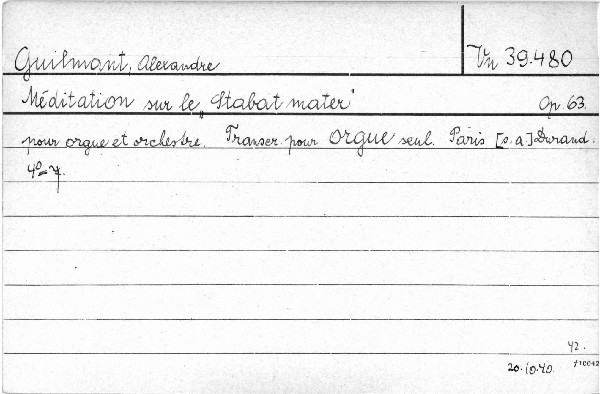 Guilmant, Alexandre
Vn 39.480
Méditation sur le „Stabat mater" Op. 63.
pour orgue et orchestre. Transcr. pour orgue seul. Paris [s.a.] Durand.
4º = 7.
42.
20.10.40.